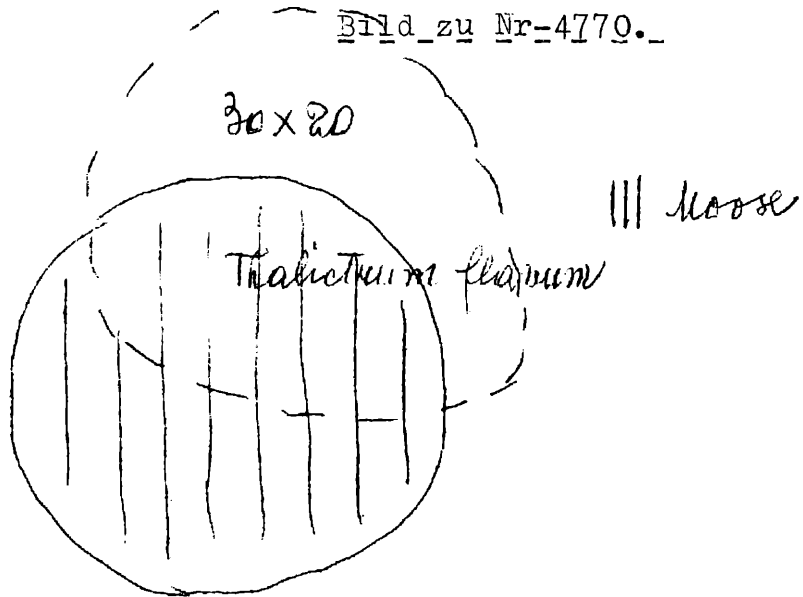 Bild zu Nr-4770.-
30 x 20
||| Moose
Thalictrum flavum